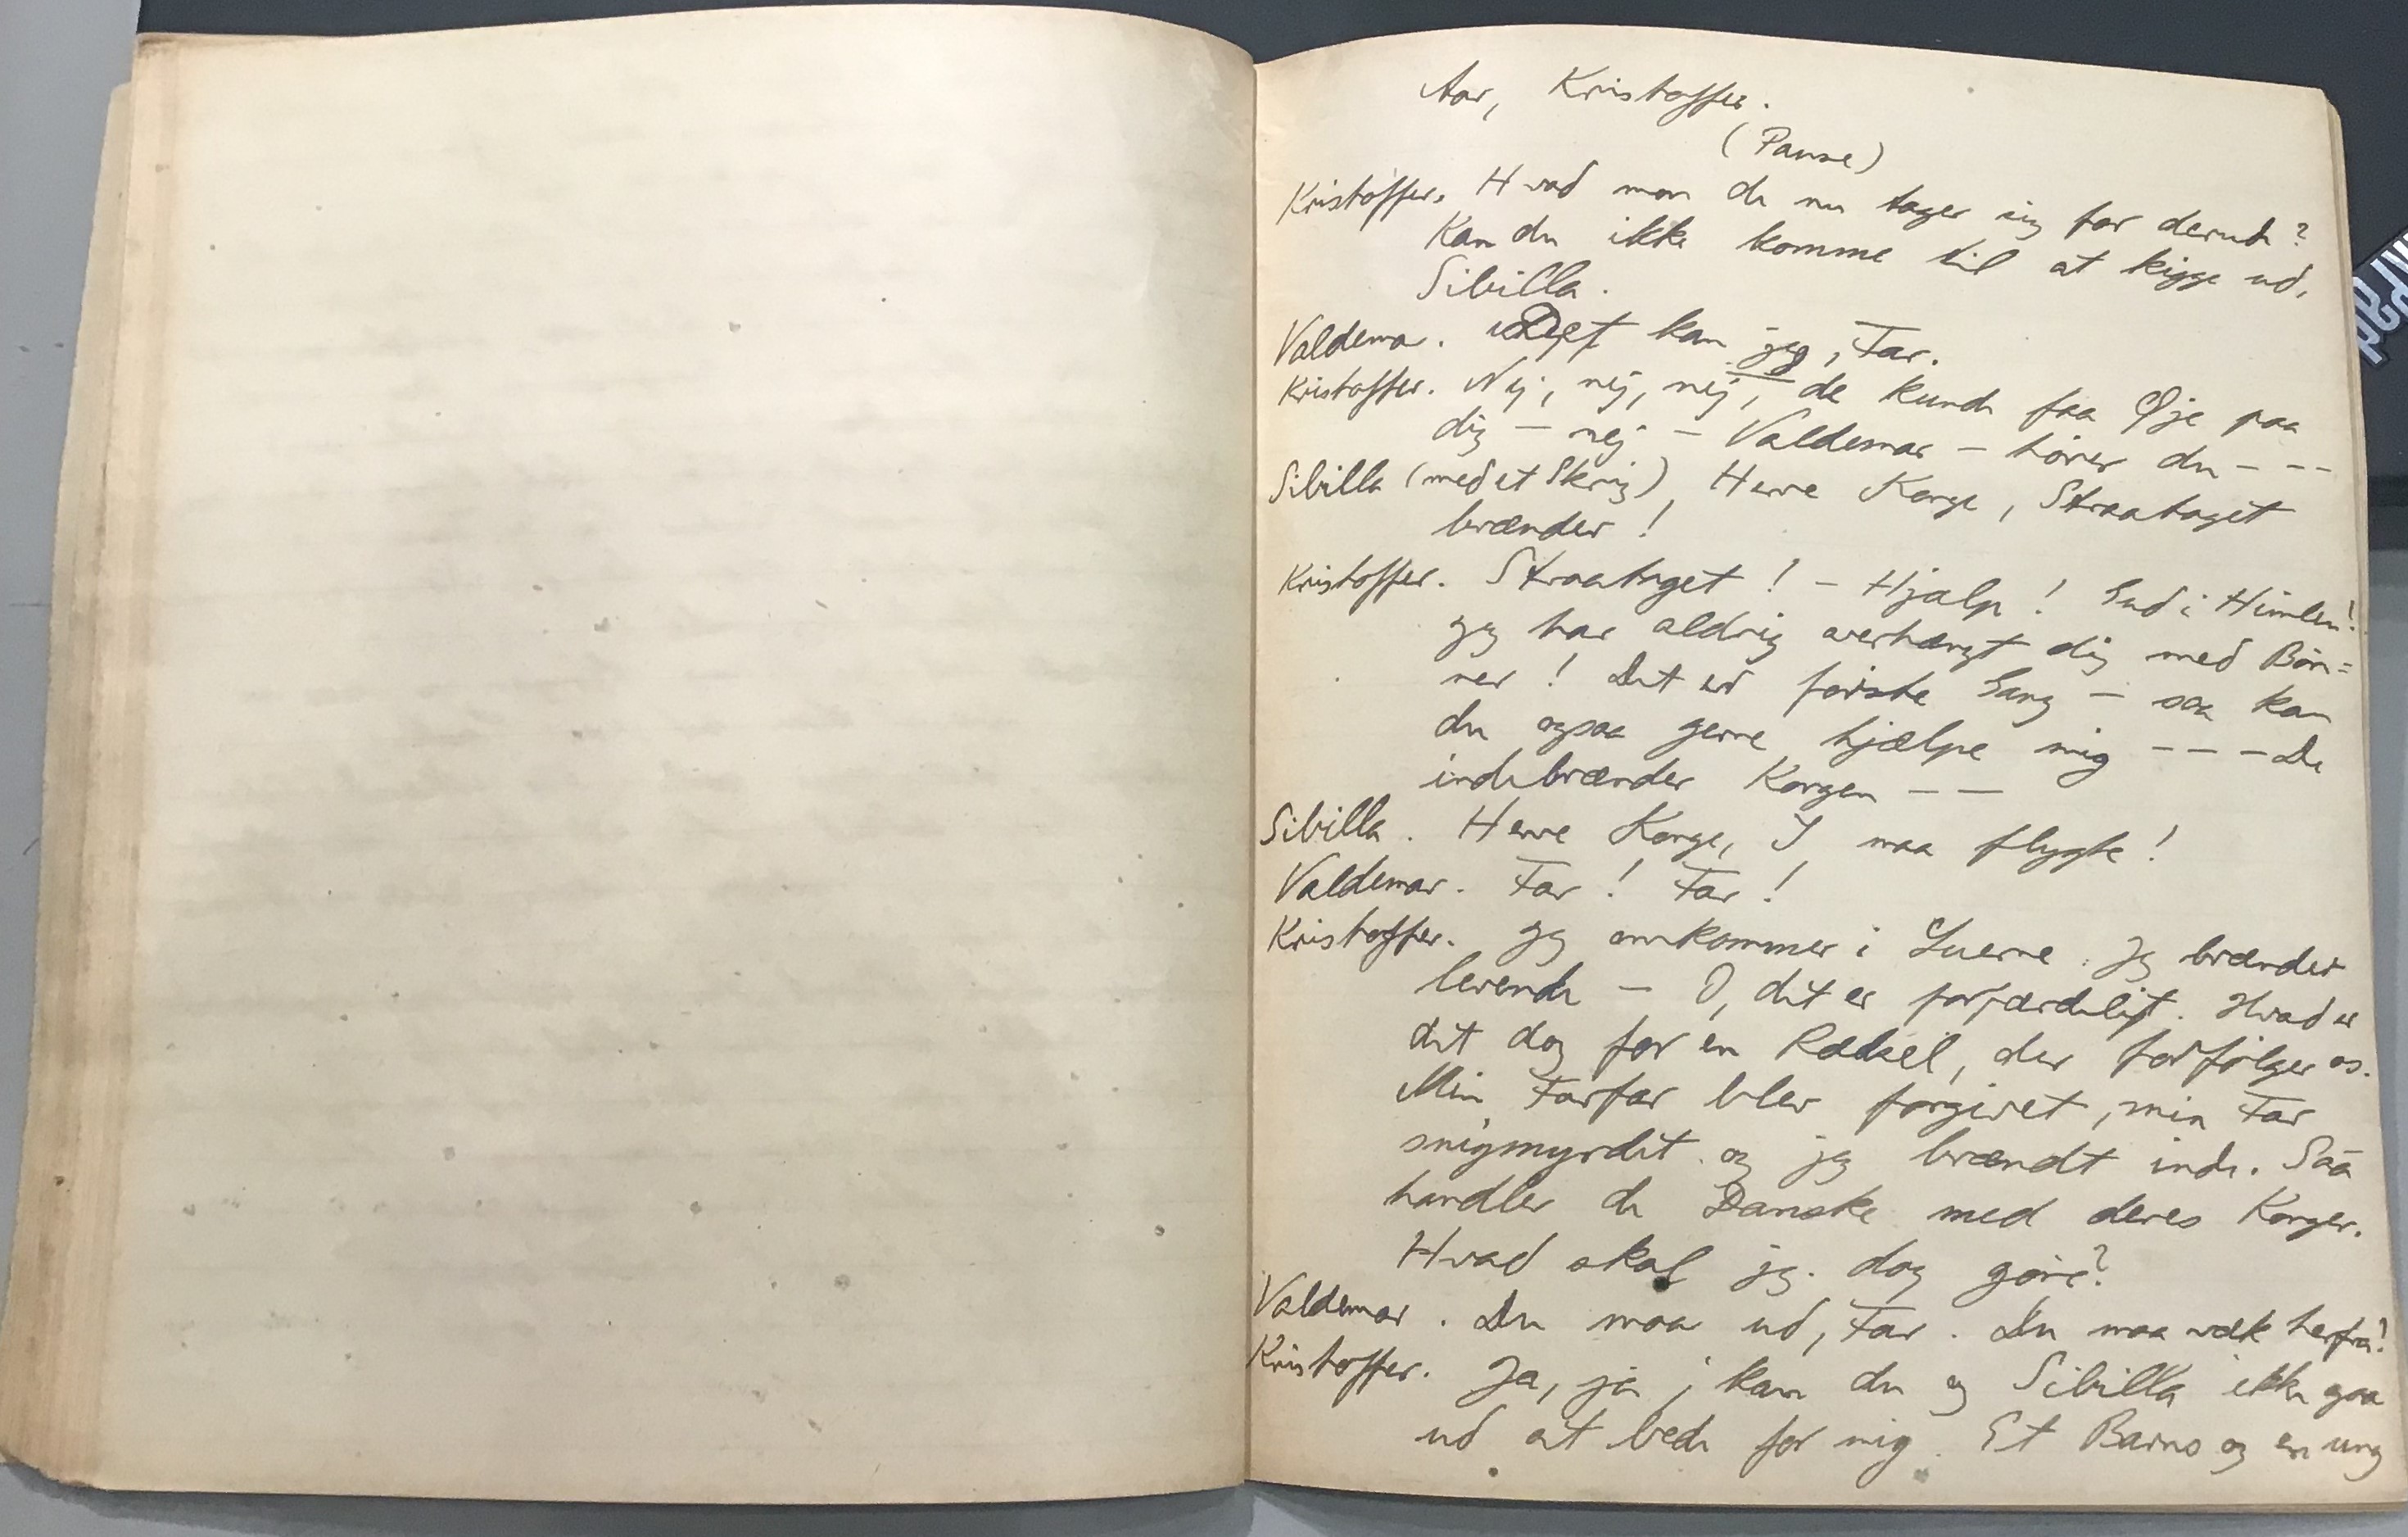 Aar, Kristoffer.
(Pause)
Kristoffer. Hvad mon de nu tager sig for derude?
Kan du ikke komme til at kigge ud,
Sibilla.
Valdemar. Det kan jeg, Far.
Kristoffer. Nej, nej, nej, de kunde faa Øje paa
dig — nej — Valdemar — hører du - - -
Sibilla (med et Skrig) Herre Konge, Straataget
brænder!
Kristoffer. Straataget! - Hjælp! Gud i Himlen!
Jeg har aldrig overhængt dig med Bøn=
ner! Det er første Gang — saa kan
du ogsaa gerne hjælpe mig - - - De
indebrænder Kongen - -
Sibilla. Herre Konge, I maa flygte!
Valdemar. Far! Far!
Kristoffer. Jeg omkommer i Luerne. Jeg brænder
levende — O, det er forfærdeligt. Hvad er
det dog for en Rædsel, der forfølger os.
Min Farfar blev forgivet, min Far
snigmyrdet og jeg brændt inde. Saa
handler de Danske med deres Konger.
Hvad skal jeg dog gøre?
Valdemar. Du maa ud, Far. Du maa væk herfra!
Kristoffer. Ja, ja; kan du og Sibilla ikke gaa
ud at bede for mig. Et Barns og en ung